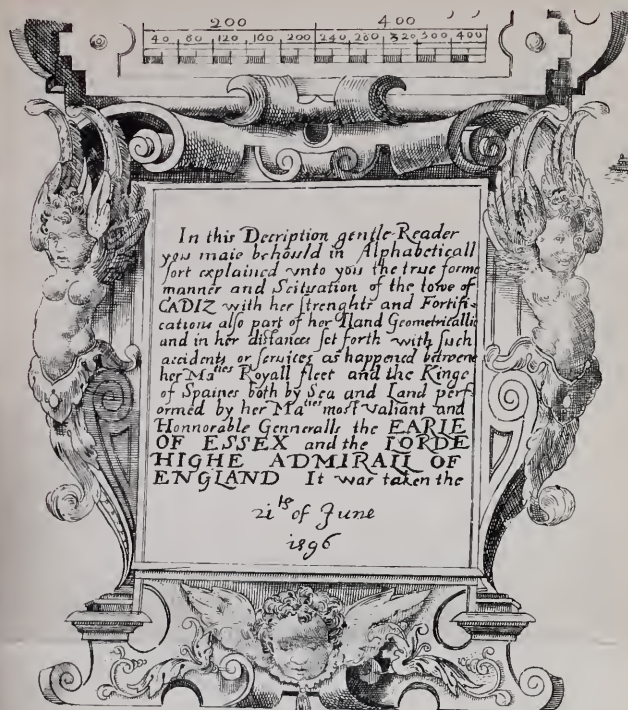 200 400
40 80 120 160 200 240 280 320 300 400
In this Decription gentle Reader
you maie behould in Alphabeticall
sort explained vnto you the true forme
manner and Scituation of the towe of
CADIZ with her strenghts and Fortifi-
cations also part of her Iland Geometricallie
and in her distances set forth with such
accidents or services as happened betwene
her Maties Royall fleet and the Kinge
of Spaines both by Sea and Land perf
ormed by her Maties most valiant and
Honnorable Genneralls the EARLE
OF ESSEX and the LORDE
HIGHE ADMIRALL OF
ENGLAND It was taken the
21 of June
1596